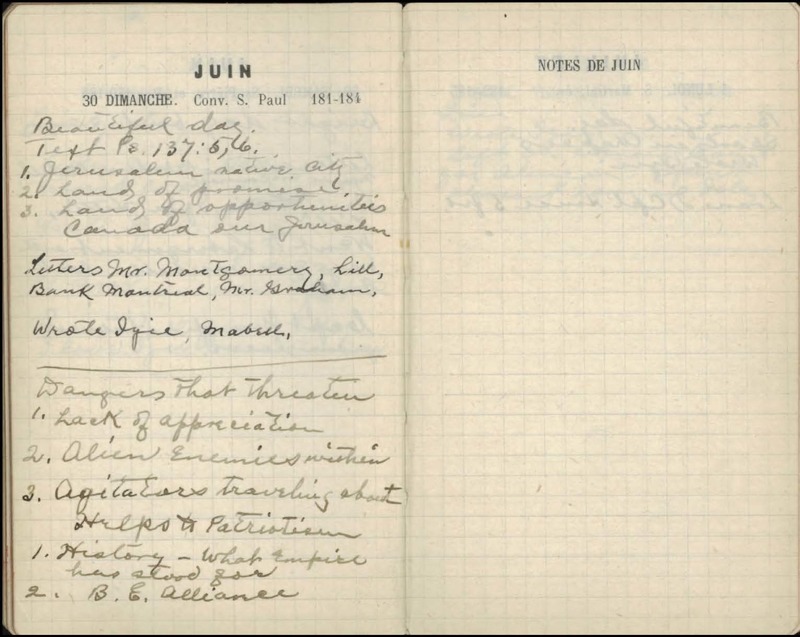 JUIN
30 DIMANCHE. Conv. S. Paul 181-184
Beautiful day.
Text Ps. 137:5,6.
1. Jerusalem native city
2. Land of promised
3. Land of opportunities
Canada our Jerusalem
Letters Mr. Montgomery, Lill,
Bank Montreal, Mr. Graham,
Wrote Mabell,
Dangers that threaten
1. Lack of appreciation
2. Alien Enemies within
3. Agitators traveling about
Helps to Patriotism
1. History – What Empire
has stood for
2. B. E. Alliance
NOTES DE JUIN